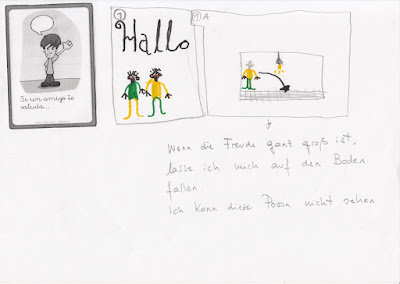 Si un amigo te
saluda...
1
Hallo
1 A
Wenn die Freude ganz groß ist,
lasse ich mich auf den Boden
fallen.
Ich kann diese Person nicht sehen